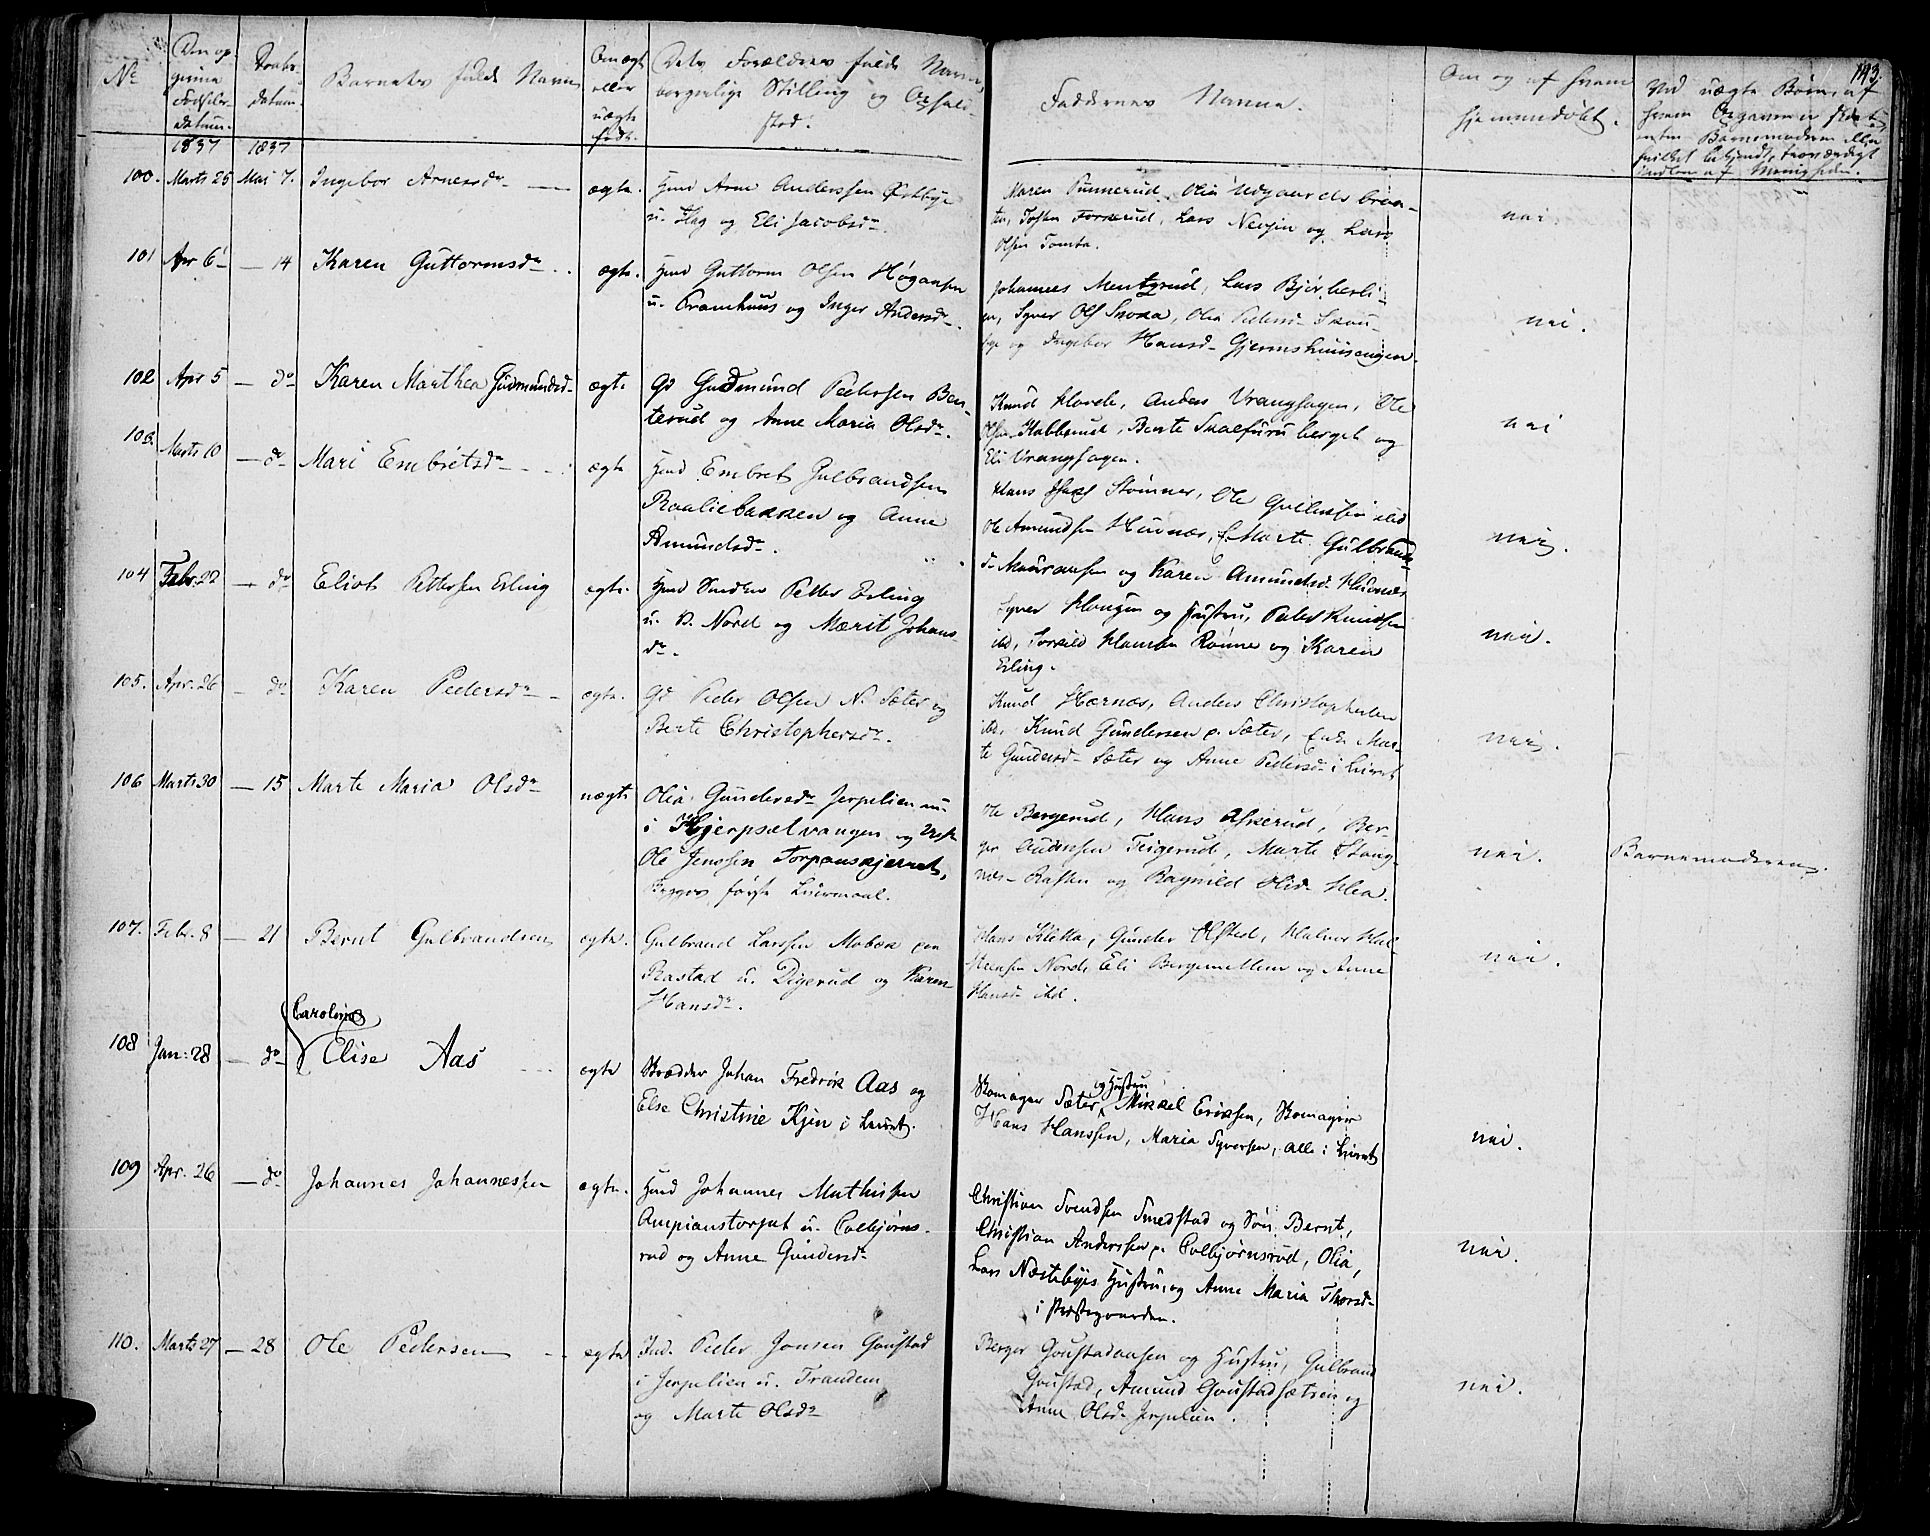 143.
No
Den op-
givne
Fødsels-
datum.
Daabs-
datum.
Barnets fulde Navn
Om ægt
eller
uægte
født.
Dets Forældres fulde Navne,
borgerlige Stilling og Opholds-
sted.
Faddernes Navne.
Om og af hvem
hjemmedøbt.
Ved uægte Børn, af
hvem Opgaven er skeet,
enten Barnemoderen eller
hvilket bekjendt, troværdigt
Medlem af Menigheden.
1837 1837
100. Marts 25 Mai 7. Ingebor Arnesdr ægte. Hmd Arne Anderssen Østbye
u. Hag og Eli Jacobsdr.
Maren Pinnerud, Olia Udgaards braa-
ten, Forkerud, Lars og Lars
Olsen Tomta.
nei
101 Apr 6 — 14 Karen Guttormsdr. ægte. Hmd Guttorm Olsen Høgaasen
u. Framhuus og Inger Andersdr.
Johannes Mentzrud, Lars Bjørkerli-
en, Syver Ols Skoka, Olia Pedersd Skou-
lye og Ingebor Hansd Gjermshuusengen.
nei.
102 Apr 5 — do Karen Marthea Gudmundsd ægte Gd Gudmund Pedersen Ben-
terud og Anne Maria Olsdr.
Knud Horde, Anders Vranghagen, Ole
Olsen Kabberud, Berte Skalfuruberget og
Eli Vranghagen.
nei
103. Marts 10 — do Mari Embretsdr ægte Hmd Embret Gulbrandsen
Raaliebakken og Anne
Amundsdr.
Hans Stømner, Ole
Ole Amundsen Huvnæs, E. Marte Gulbrands-
dr Mauraasen og Karen Amundsd Huvnæs
nei.
104 Febr. 22 — do Eliot Pettersen Erling ægte. Hmd Petter Erling
u. P. Nord og Marit Johans-
dr.
Syver Haugen og Hustru, Peder Knudsen
ibd, Torkild Hansen Rønne og Karen
Erling.
nei.
105. Apr. 26 — do Karen Pedersdr ægte. Gd Peder Olsen N. Sæter og
Berte Christophersdr.
Knud Hærnæs, Anders Christophersen
ibd. Knud Gundersen p. Sæter, Enke Mar-
te Gundersd Sæter og Anne Pedersdr i Leiret
nei.
106 Marts 30 — 15 Marte Maria Olsdr uægte Olia Gundersdr Jerpelien nu
i Hjerpsætvangen og
Ole Jenssen Torpanskjernet,
Begges første Leiermaal.
Ole Bergerud, Hans Askerud, Ber-
ger Audensen Teigerud, Marte Stang-
næs-Rasten og Ragnild Olsd Hea.
nei.
Barnemoderen.
107. Febr. 8 — 21 Bernt Gulbrandsen ægte. Gulbrand Larssen Mobæk paa
Rastad u. Digerud og Karen
Hansdr.
Hans Kletta, Gunder Olsted, Halvor Hal-
steensen Nord, Eli Bergemellem og Anne
Hansd ibd.
nei.
108 Jan: 28 — do Caroline
Elise Aas ægte Skrædder Johan Fredrik Aas og
Else Christine Kjen i Leiret.
Skomager Sæter og Hustru, Mikkel Eriksen, Skomager
Hans Hanssen, Maria Syversen, alle i Leiret
nei.
109 Apr. 26 — do Johannes Johannessen ægte. Hmd Johannes Mathisen
Ampianstorpet u. Colbjørns-
rud og Anne Gundersd
Christian Svendsen Smedstad og Søn Bernt,
Christian Anderssen p. Colbjørnsrud, Olia,
Lars Næstebyes Hustru, og Anne Maria Thorsd
i Præstegaarden.
nei.
110. Marts 27 — 28 Ole Pedersen ægte Ind. Peder Jonsen Goustad
i Jerpelien u. Trandem
og Marte Olsdr
Berger Goustadaasen og Hustru, Gulbrand
Goustad, Amund Goustadsætren og
Anne Olsd Jerpelien.
nei.